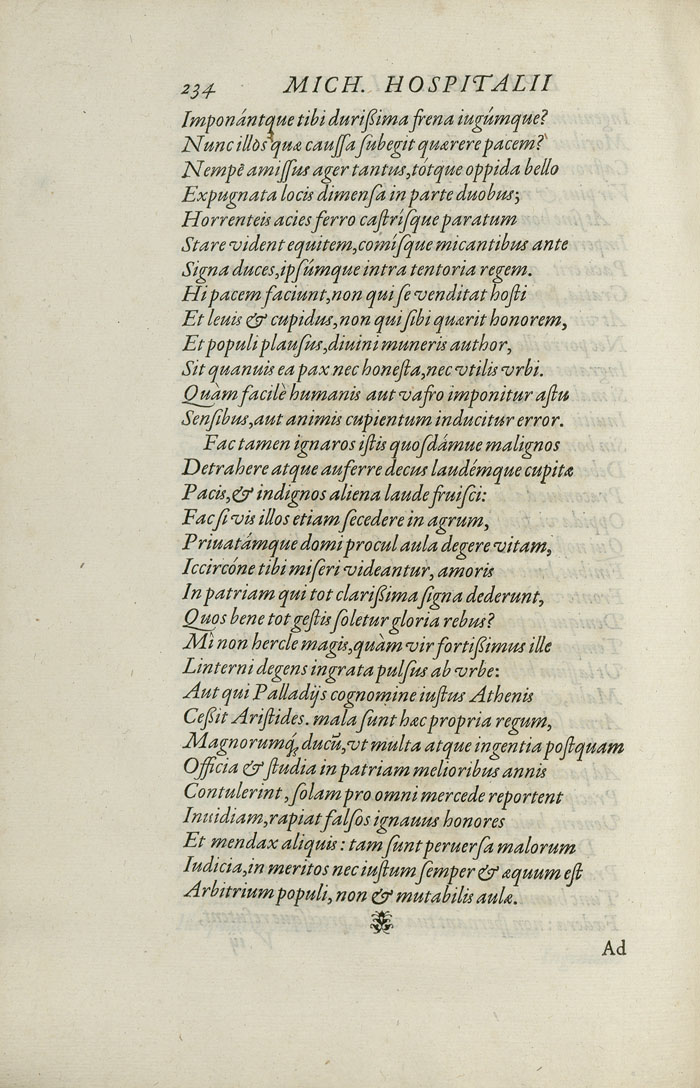 234 MICH. HOSPITALII
Imponántque tibi durißima frena iugúmque?
Nunc illos quæ cauſſa ſubegit quærere pacem?
Nempè amiſſus ager tantus, tótque oppida bello
Expugnata locis dimenſa in parte duobus;
Horrenteis acies ferro caſtríſque paratum
Stare vident equitem, comíſque micantibus ante
Signa duces, ipſúmque intra tentoria regem.
Hi pacem faciunt, non qui ſe venditat hoſti
Et leuis & cupidus, non qui ſibi quærit honorem,
Et populi plauſus, diuini muneris author,
Sit quanuis ea pax nec honeſta, nec vtilis vrbi.
Quàm facilè humanis aut vafro imponitur aſtu
Senſibus, aut animis cupientum inducitur error.
Fac tamen ignaros iſtis quoſdámue malignos
Detrahere atque auferre decus laudémque cupitæ
Pacis, & indignos aliena laude fruiſci:
Fac ſi vis illos etiam ſecedere in agrum,
Priuatámque domi procul aula degere vitam,
Iccircóne tibi miſeri videantur, amoris
In patriam qui tot clarißima ſigna dederunt,
Quos bene tot geſtis ſoletur gloria rebus?
Mì non hercle magis, quàm vir fortißimus ille
Linterni degens ingrata pulſus ab vrbe:
Aut qui Palladijs cognomine iuſtus Athenis
Ceßit Ariſtides. mala ſunt hæc propria regum,
Magnorumq́; ducū, vt multa atque ingentia poſtquam
Officia & ſtudia in patriam melioribus annis
Contulerint, ſolam pro omni mercede reportent
Inuidiam, rapiat falſos ignauus honores
Et mendax aliquis: tam ſunt peruerſa malorum
Iudicia, in meritos nec iuſtum ſemper & æquum eſt
Arbitrium populi, non & mutabilis aulæ.
Ad